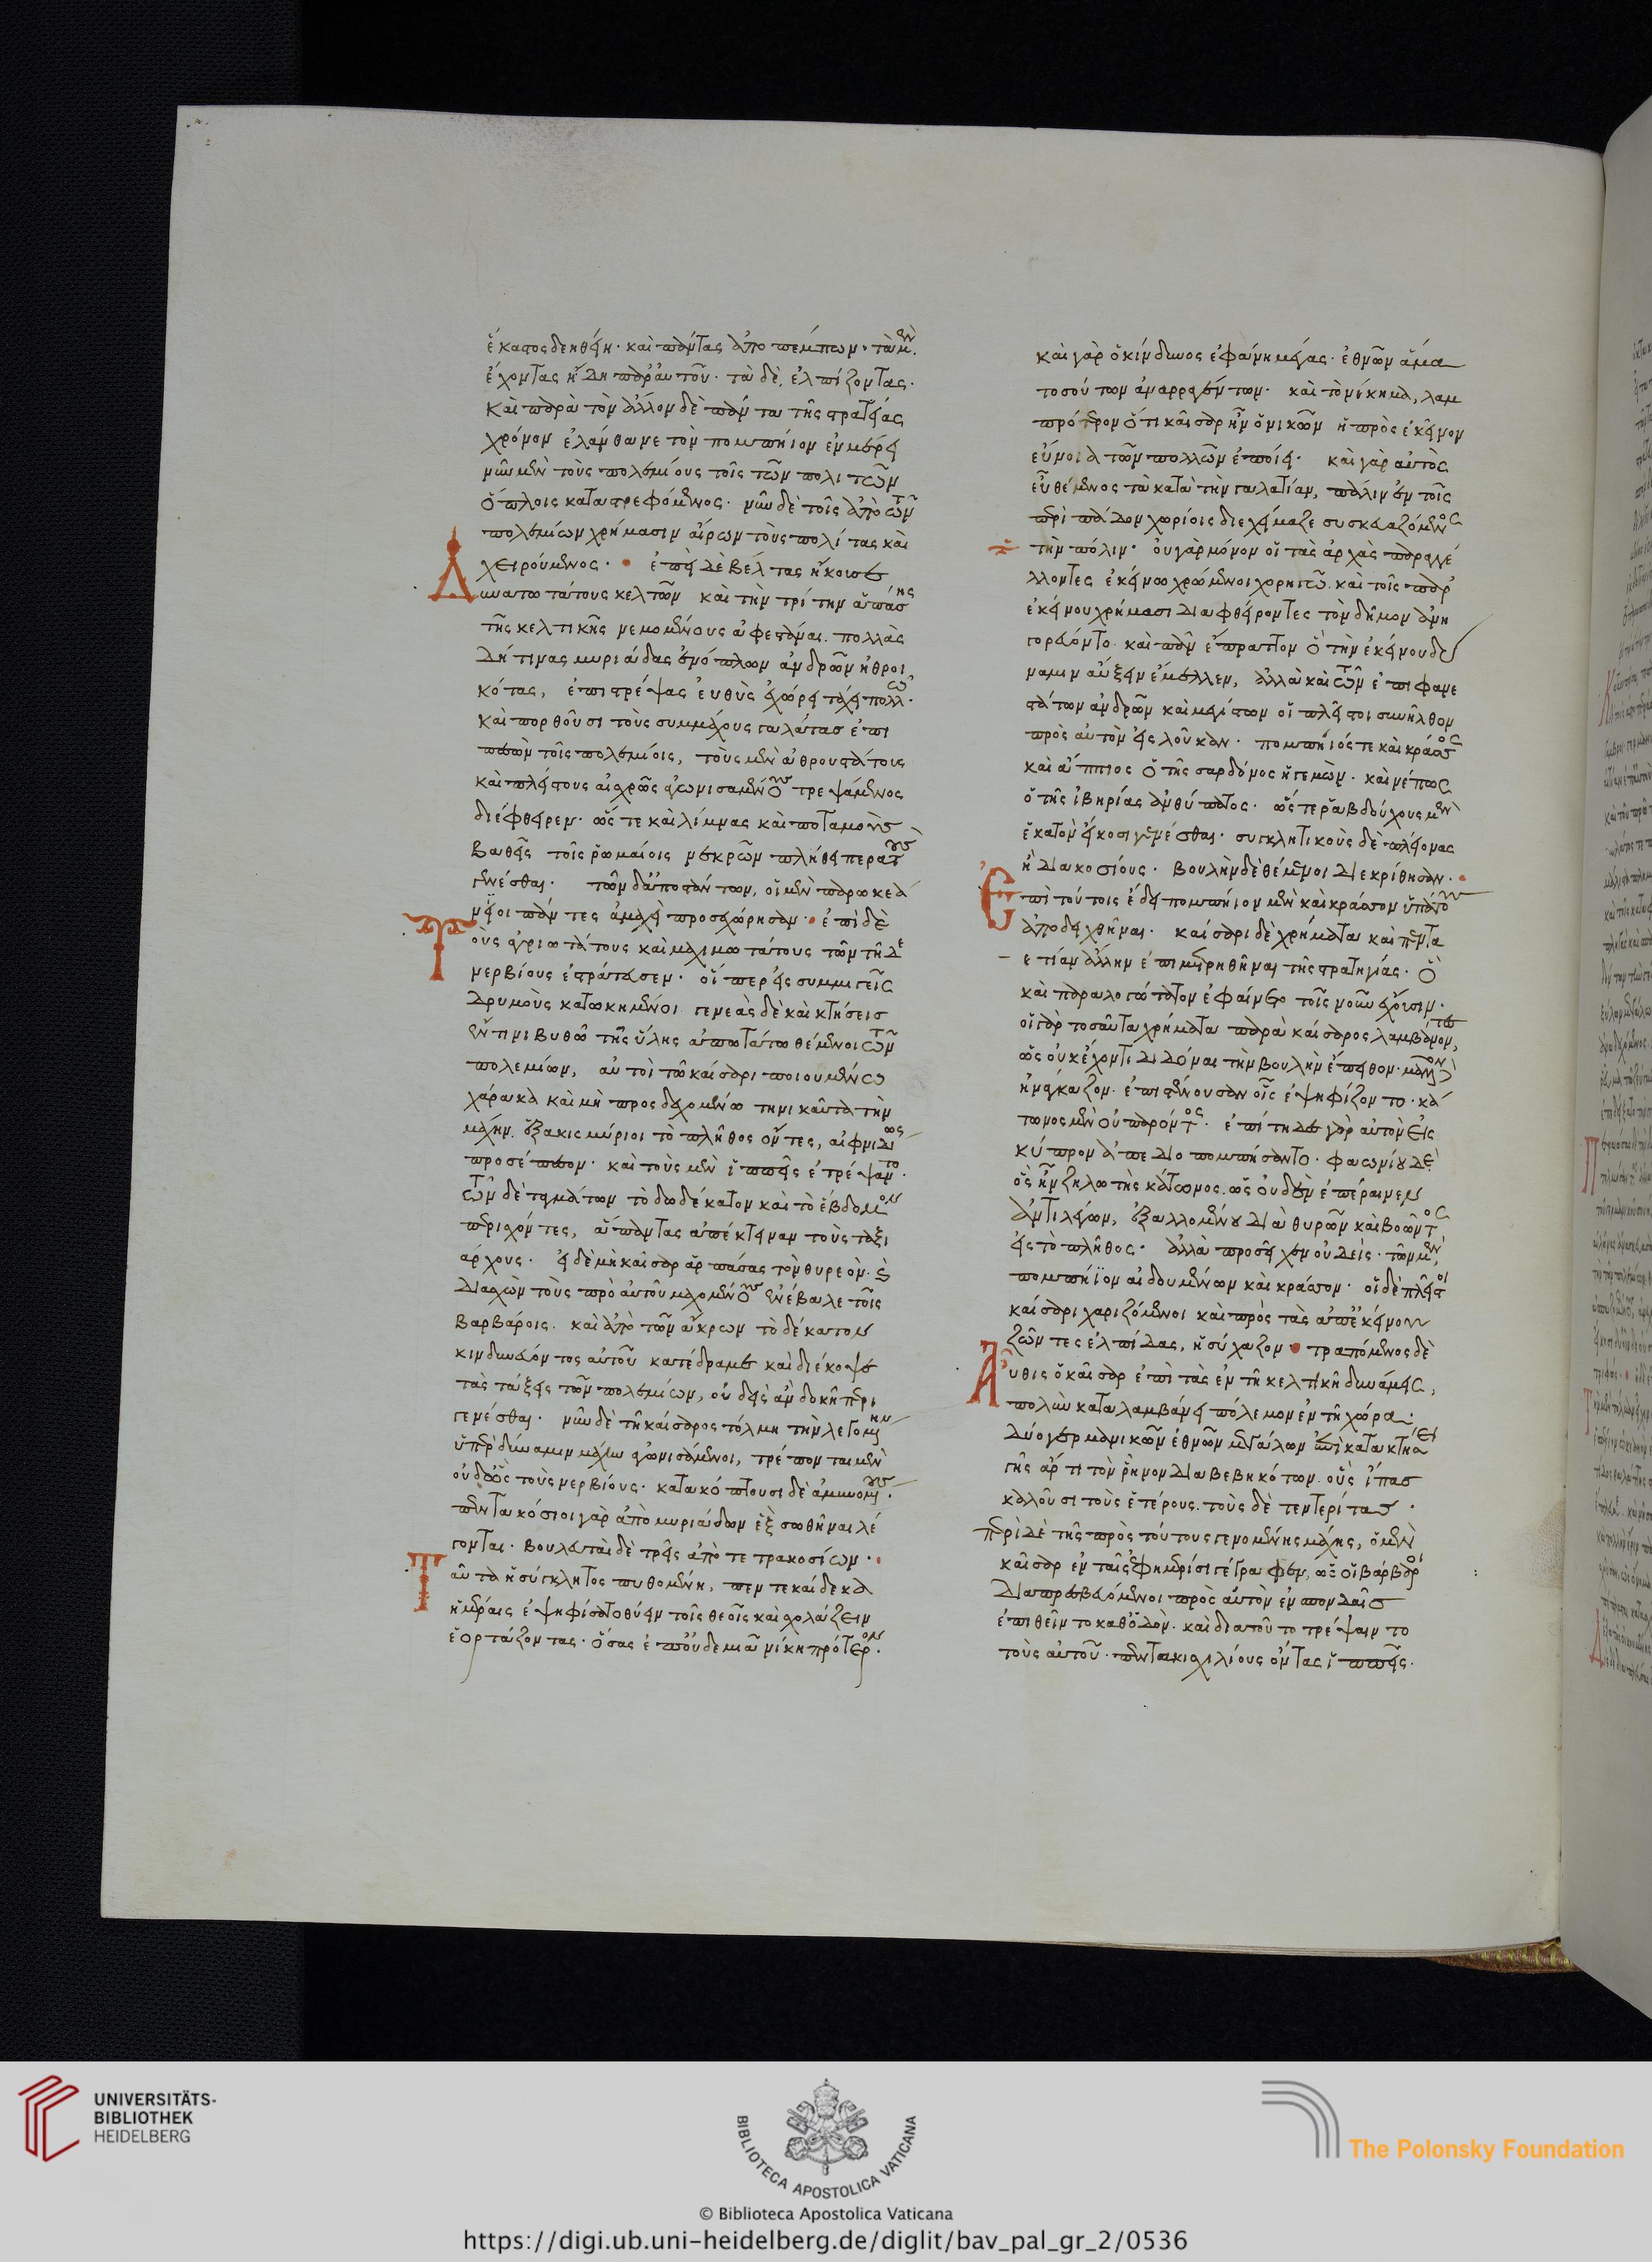 ἕκαστος δεηθείη· καὶ πάντας ἀποπέμπων· τὰ μὲν.
ἔχοντας ἤδη παρ' αὐτοῦ· τὰ δὲ, ἐλπίζοντας.
καὶ παρὰ τὸν ἄλλον δὲ πάντα τῆς στρατείας
χρόνον ἐλάνθανε τὸν πομπήιον ἐν μέρει
νῦν μὲν τοὺς πολεμίους τοῖς τῶν πολιτῶν
ὅπλοις καταστρεφόμενος· νῦν δὲ τοῖς ἀπὸ τῶν
πολεμίων χρήμασιν αἱρῶν τοὺς πολίτας καὶ
χειρούμενος· ἐπεὶ δὲ βέλγας ἤκουσε
Δυνατωτάτους κελτῶν καὶ τὴν τρίτην ἁπάσης
τῆς κελτικῆς νεμομένους ἀφεστάναι. πολλὰς
δή τινας μυριάδας ἐνόπλων ἀνδρῶν ἠθροι
κότας, ἐπιστρέψας εὐθὺς ἐχώρει τάχει πολλῷ·
καὶ πορθοῦσι τοὺς συμμάχους γαλάτας ἐπι
πεσὼν τοῖς πολεμίοις, τοὺς μὲν ἀθρουστάτους
καὶ πλείστους αἰσχρῶς ἀγωνισαμένους τρεψάμενος
διέφθειρεν· ὥστε καὶ λίμνας καὶ ποταμοὺς
βαθεῖς τοῖς ῥωμαίοις νεκρῶν πλήθει περατοὺς
γενέσθαι. τῶν δ' ἀποστάντων, οἱ μὲν παρωκεά
νειοι πάντες ἀμαχεὶ προσεχώρησαν· ἐπὶ δὲ
Τοὺς ἀγριωτάτους καὶ μαχιμωτάτους τῶν τῇδε
νερβίους ἐστράτευσεν· οἵπερ εἰς συμμιγεῖς
δρυμοὺς κατῳκημένοι γενεὰς δὲ καὶ κτήσεις
ἔν τινι βυθῷ τῆς ὕλης ἀπωτάτω θέμενοι τῶν
πολεμίων, αὐτοὶ τῷ καίσαρι ποιουμένῳ
χάρακα καὶ μὴ προσδεχομένῳ τηνικαῦτα τὴν
μάχην. ἑξακισμύριοι τὸ πλῆθος ὄντες, αἰφνιδίως
προσέπεσον· καὶ τοὺς μὲν ἱππεῖς ἐτρέψαντο·
τῶν δὲ ταγμάτων τὸ δωδέκατον καὶ τὸ ἕβδομον
περισχόντες, ἅπαντας ἀπέκτειναν τοὺς ταξι
άρχους· εἰ δὲ μὴ καῖσαρ ἁρπάσας τὸν θυρεὸν· καὶ
διασχὼν τοὺς πρὸ αὐτοῦ μαχομένους ἐνέβαλε τοῖς
βαρβάροις. καὶ ἀπὸ τῶν ἄκρων τὸ δέκατον
κινδυνεύοντος αὐτοῦ κατέδραμε καὶ διέκοψε
τὰς τάξεις τῶν πολεμίων, οὐδεὶς ἂν δοκῇ περι
γενέσθαι· νῦν δὲ τῇ καίσαρος τόλμῃ τὴν λεγομένην
ὑπὲρ δύναμιν μάχην ἀγωνισάμενοι, τρέπονται μὲν
οὐδ' ὣς τοὺς νερβίους· κατακόπτουσι δὲ ἀμυνομένους·
πεντακόσιοι γὰρ ἀπὸ μυριάδων ἓξ σωθῆναι λέ
γονται. βουλευταὶ δὲ τρεῖς ἀπὸ τετρακοσίων·
Ταῦτα ἡ σύγκλητος πυθομένη, πεντεκαίδεκα
ἡμέρας ἐψηφίσατο θύειν τοῖς θεοῖς καὶ σχολάζειν
ἑορτάζοντας· ὅσας ἐπ' οὐδεμιᾷ νίκῃ πρότερον.
καὶ γὰρ ὁ κίνδυνος ἐφάνη μέγας· ἐθνῶν ἅμα
τοσούτων ἀναρραγέντων· καὶ τὸ νίκημα, λαμ
πρότερον ὅτι καῖσαρ ἦν ὁ νικῶν ἡ πρὸς ἐκεῖνον
εὔνοια τῶν πολλῶν ἐποίει· καὶ γὰρ αὐτὸς
εὖ θέμενος τὰ κατὰ τὴν γαλατίαν, πάλιν ἐν τοῖς
περὶ πάδον χωρίοις διεχείμαζε συσκευαζόμενος
τὴν πόλιν· οὐ γὰρ μόνον οἱ τὰς ἀρχὰς παραγγέ
λλοντες ἐκείνῳ χρώμενοι χορηγῷ. καὶ τοῖς παρ'
ἐκείνου χρήμασι διαφθείροντες τὸν δῆμον ἀνη
γορεύοντο. καὶ πᾶν ἔπραττον ὃ τὴν ἐκείνου δύ
ναμιν αὔξειν ἔμελλεν, ἀλλὰ καὶ τῶν ἐπιφανε
στάτων ἀνδρῶν καὶ μεγίστων οἱ πλεῖστοι συνῆλθον
πρὸς αὐτὸν εἰς λοῦκαν· πομπήιός τε καὶ κράσσος
καὶ ἄππιος ὁ τῆς σαρδόνος ἡγεμὼν· καὶ νέπως
ὁ τῆς ἰβηρίας ἀνθύπατος· ὥστε ῥαβδούχους μὲν
ἑκατὸν εἴκοσι γενέσθαι· συγκλητικοὺς δὲ πλείονας
ἢ διακοσίους· βουλὴν δὲ θέμενοι διεκρίθησαν·
Ἐπὶ τούτοις ἔδει πομπήιον μὲν καὶ κράσσον ὑπάτους
ἀποδειχθῆναι· καίσαρι δὲ χρήματα καὶ πεντα
ετίαν ἄλλην ἐπιμετρηθῆναι τῆς στρατηγίας· ὃ
καὶ παραλογώτατον ἐφαίνετο τοῖς νοῦν ἔχουσιν·
οἱ γὰρ τοσαῦτα χρήματα παρὰ καίσαρος λαμβάνοντες,
ὡς οὐκ ἔχοντι διδόναι τὴν βουλὴν ἔπειθον· μᾶλλον δ'
ἠνάγκαζον· ἐπιστένουσαν οἷς ἐψηφίζοντο· κά
τωνος μὲν οὐ παρόντος· ἐπίτηδες γὰρ αὐτὸν εἰς
κύπρον ἀπεδιοπομπήσαντο· φαωνίου δὲ
ὃς ἦν ζηλωτὴς κάτωνος. ὡς οὐδὲν ἐπέραινεν
ἀντιλέγων, ἐξαλλομένου διὰ θυρῶν καὶ βοῶντος
εἰς τὸ πλῆθος· ἀλλὰ προσεῖχεν οὐδείς· τῶν μὲν,
πομπήϊον αἰδουμένων καὶ κράσσον· οἱ δὲ πλεῖστοι
καίσαρι χαριζόμενοι καὶ πρὸς τὰς ἀπ' ἐκείνου
ζῶντες ἐλπίδας, ἡσύχαζον· τραπόμενος δὲ
Αὖθις ὁ καῖσαρ ἐπὶ τὰς ἐν τῇ κελτικῇ δυνάμεις,
πολὺν καταλαμβάνει πόλεμον ἐν τῇ χώρᾳ·
δύο γερμανικῶν ἐθνῶν μεγάλων ἐπὶ κατακτήσει
γῆς ἄρτι τὸν ῥῆνον διαβεβηκότων. οὓς ἴπας
καλοῦσι τοὺς ἑτέρους. τοὺς δὲ τεντερίτας·
περὶ δὲ τῆς πρὸς τούτους γενομένης μάχης, ὁ μὲν
καῖσαρ ἐν ταῖς ἐφημερίσι γέγραφεν, ὡς οἱ βάρβαροι
διαπρεσβευόμενοι πρὸς αὐτὸν ἐν σπονδαῖς
ἐπιθεῖντο καθ' ὁδὸν· καὶ διὰ τοῦτο τρέψαιντο
τοὺς αὐτοῦ· πεντακισχιλίους ὄντας ἱππεῖς.
UNIVERSITÄTS-
BIBLIOTHEK
HEIDELBERG
BIBLIOTECA APOSTOLICA VATICANA
The Polonsky Foundation
© Biblioteca Apostolica Vaticana
https://digi.ub.uni-heidelberg.de/diglit/bav_pal_gr_2/0536